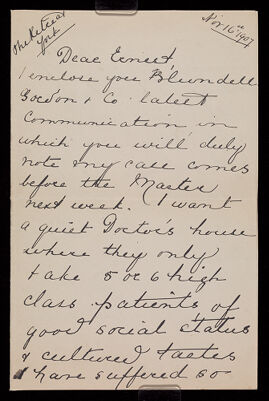 The Retreat
York
Nov 16th 1907
Dear Ernest
I enclose you Blundell
Gordon & Co. latest
communication in
which you will duly
note my case comes
before the Master
next week. I want
a quiet Doctor's house
where they only
take 5 or 6 high
class patients of
good social status
& cultured tastes
I have suffered so